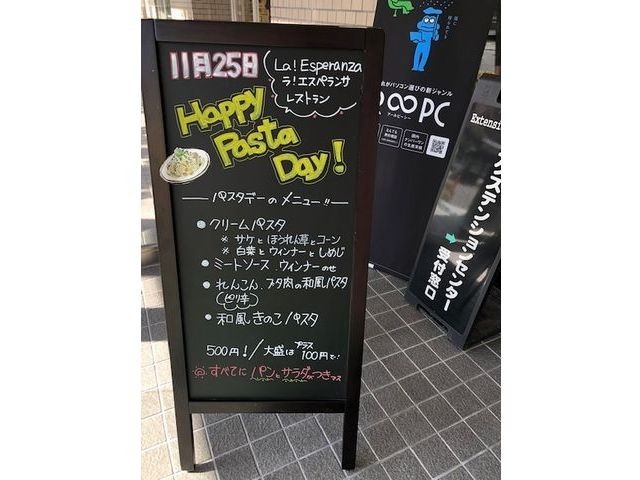 11月25日
La! Esperanza
ラ!エスペランサ
レストラン
Happy
Pasta
Day!
パスタデーのメニュー!!
● クリームパスタ
※ サケとほうれん草とコーン
※ 白菜とウィンナーとしめじ
● ミートソース ウィンナーのせ
● れんこん、ブタ肉の和風パスタ
(ピリ辛)
● 和風きのこパスタ
500円!/大盛はプラス100円で!
すべてに パンとサラダがつきマス
パソコン選びの新ジャンル
∞PC
アールピーシー
Extensi
ステンションセンター
受付窓口